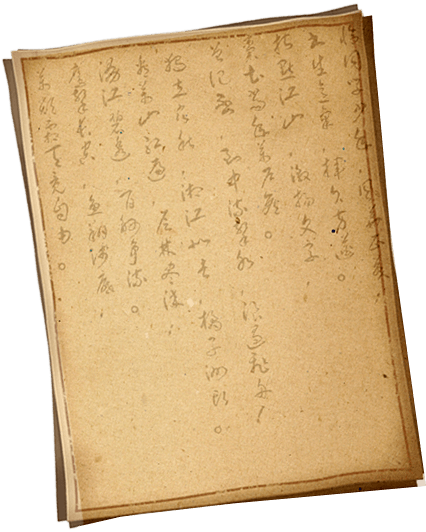 恰同学少年，风华正茂；
书生意气，挥斥方遒。
指点江山，激扬文字，
粪土当年萬户侯。
曾记否，到中流击水，浪遏飞舟！
独立寒秋，湘江北去，橘子洲头。
看萬山红遍，层林尽染；
漫江碧透，百舸争流。
鹰击长空，鱼翔浅底，
萬类霜天竞自由。